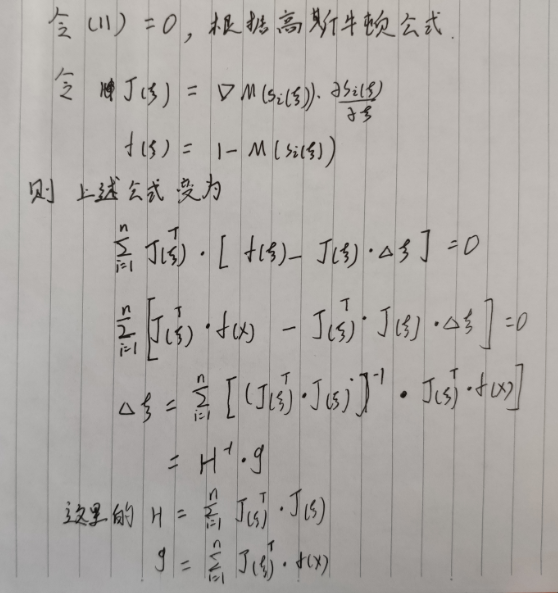 令 (11) = 0, 根据高斯牛顿公式.
令 J(ξ) = ∇M(Si(ξ))·∂Si(ξ)/∂ξ
f(ξ) = 1 - M(Si(ξ))
则 上述公式变为
∑_{i=1}^{n} J(ξ)^T · [ f(ξ) - J(ξ)·Δξ ] = 0
∑_{i=1}^{n} [ J(ξ)^T · f(x) - J(ξ)^T · J(ξ) · Δξ ] = 0
Δξ = ∑_{i=1}^{n} [ (J(ξ)^T · J(ξ))^{-1} · J(ξ)^T · f(x) ]
= H^{-1} · g
这里的 H = ∑_{i=1}^{n} J(ξ)^T · J(ξ)
g = ∑_{i=1}^{n} J(ξ)^T · f(x)